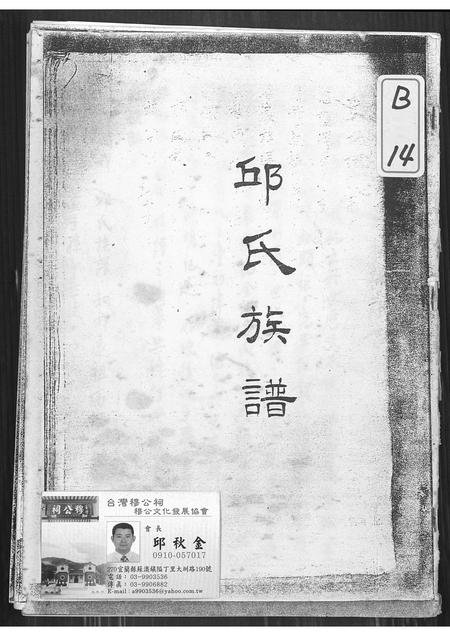 B
14
邱氏族譜
穆公祠
台灣穆公祠
穆公文化發展協會
會長
邱秋金
0910-057017
270宜蘭縣蘇澳鎮隘丁里大洲路190號
電話：03-9903536
傳真：03-9906882
E-mail：a9903536@yahoo.com.tw